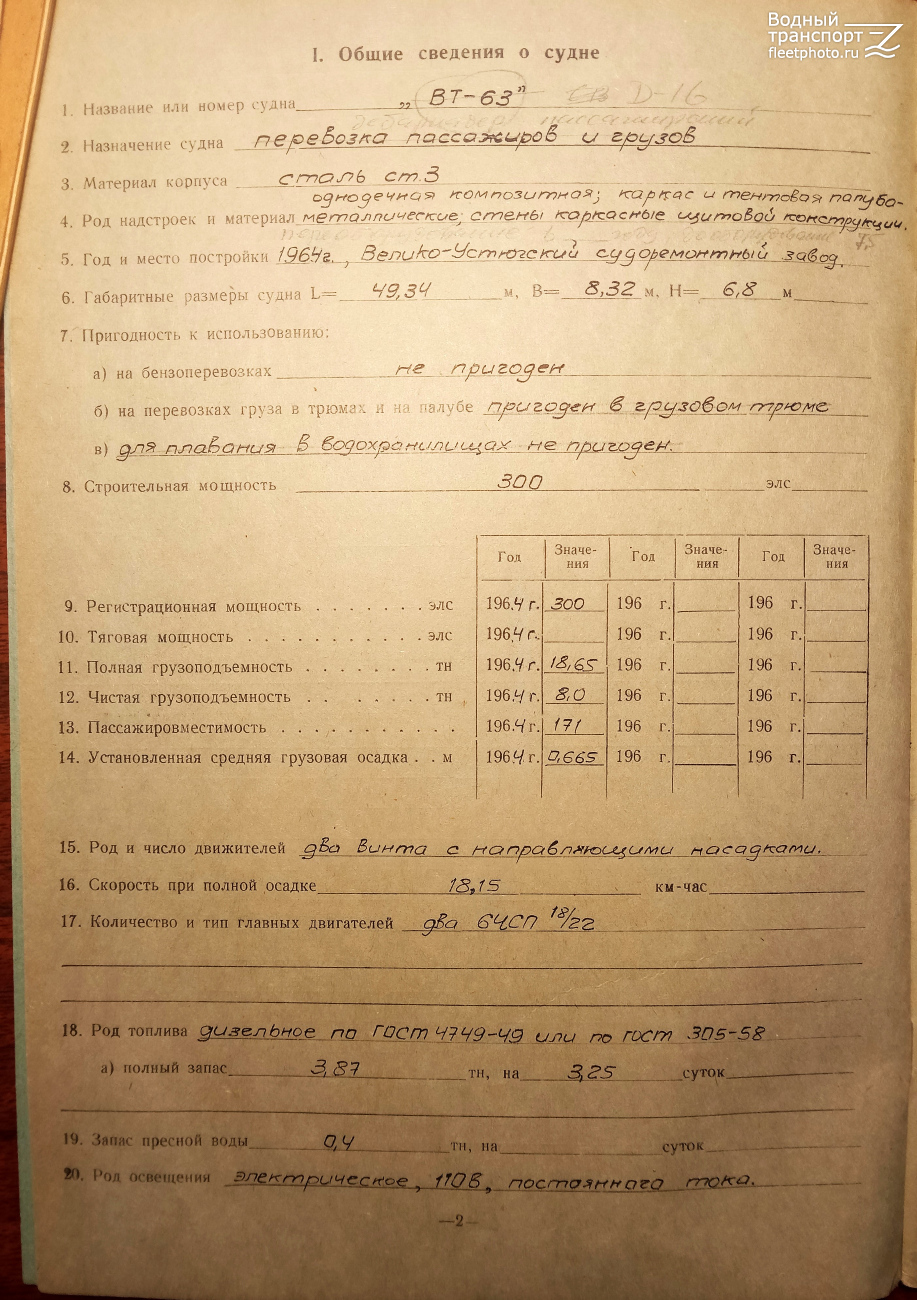 Водный
транспорт
fleetphoto.ru
I. Общие сведения о судне
1. Название или номер судна „ ВТ-63" D-16
пассажирский
2. Назначение судна перевозка пассажиров и грузов
3. Материал корпуса сталь ст.3
однодечная композитная; каркас и тентовая палуба-
4. Род надстроек и материал металлические; стены каркасные щитовой конструкции.
5. Год и место постройки 1964г., Велико-Устюгский судоремонтный завод.
6. Габаритные размеры судна L= 49,34 м, B= 8,32 м, H= 6,8 м
7. Пригодность к использованию:
а) на бензоперевозках не пригоден
б) на перевозках груза в трюмах и на палубе пригоден в грузовом трюме
в) для плавания в водохранилищах не пригоден.
8. Строительная мощность 300 элс
Год Значе- Год Значе- Год Значе-
ния ния ния
9. Регистрационная мощность . . . . . . . элс 1964 г. 300 196 г. 196 г.
10. Тяговая мощность . . . . . . . . . . . элс 1964 г. 196 г. 196 г.
11. Полная грузоподъемность . . . . . . . . тн 1964 г. 18,65 196 г. 196 г.
12. Чистая грузоподъемность . . . . . . . . тн 1964 г. 8,0 196 г. 196 г.
13. Пассажировместимость . . . . . . . . . . . 1964 г. 171 196 г. 196 г.
14. Установленная средняя грузовая осадка . . м 1964 г. 0,665 196 г. 196 г.
15. Род и число движителей два винта с направляющими насадками.
16. Скорость при полной осадке 18,15 км-час
17. Количество и тип главных двигателей два 6ЧСП 18/22
18. Род топлива дизельное по ГОСТ 4749-49 или по ГОСТ 305-58
а) полный запас 3,87 тн, на 3,25 суток
19. Запас пресной воды 0,4 тн, на суток
20. Род освещения электрическое, 110в, постоянного тока.
—2—